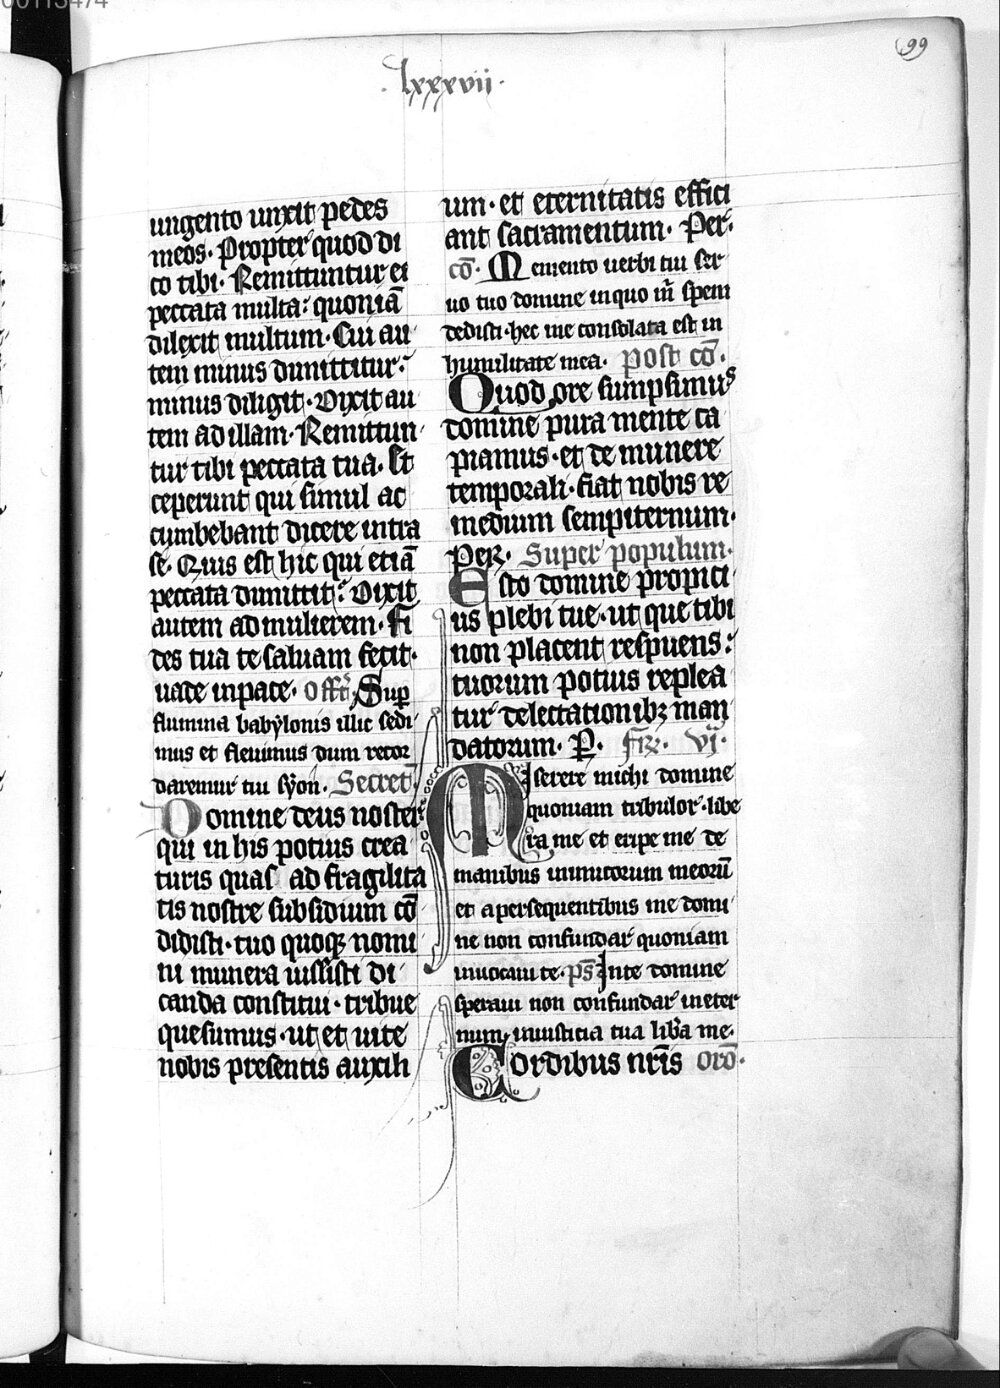 99
.lxxxvii.
ungento unxit pedes
meos. Propter quod di
co tibi. Remittuntur ei
peccata multa: quoniā
dilexit multum. Cui au
tem minus dimittitur:
minus diligit. Dixit au
tem ad illam. Remittun
tur tibi peccata tua. Et
ceperunt qui simul ac
cumbebant dicere intra
se. Quis est hic qui etiā
peccata dimittit? Dixit
autem ad mulierem. Fi
des tua te salvam fecit.
vade in pace. Offr̄. Sup
flumina babylonis illic sedi
mus et flevimus dum recor
daremur tui syon. Secret̄
Domine deus noster
qui in his potius crea
turis quas ad fragilita
tis nostre subsidium cō
didisti. tuo quoqꝫ nomi
ni munera iussisti di
canda constitui. tribue
quesumus. ut et vite
nobis presentis auxili
um. et eternitatis effici
ant sacramentum. Per.
cō. Memento verbi tui ser
vo tuo domine in quo m̄ spem
dedisti. hec me consolata est in
humilitate mea. post cō.
Quod ore sumpsimus
domine pura mente ca
piamus. et de munere
temporali. fiat nobis re
medium sempiternum.
Per. Super populum.
Esto domine propici
us plebi tue. ut que tibi
non placent respuens:
tuorum potius replea
tur delectationibꝫ man
datorum. P. fr̄. vj.
Miserere michi domine
quoniam tribulor. libe
ra me et eripe me de
manibus inimicorum meorū
et a persequentibus me domi
ne non confundar quoniam
invocavi te. ps̄ In te domine
speravi non confundar in eter
num. in iusticia tua lib̄a me.
Cordibus nr̄is orō.